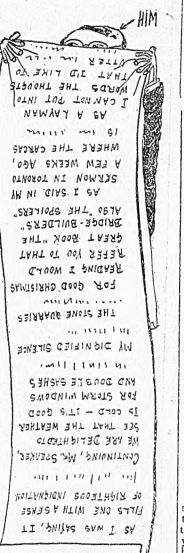 HIM
AS I WAS SAYING, IT
FILLS ONE WITH A SENSE
OF RIGHTEOUS INDIGNATION
CONTINUING, MR. SPEAKER,
WE ARE DELIGHTED TO
SEE THAT THE WEATHER
IS COLD — IT'S GOOD
FOR STORM WINDOWS
AND DOUBLE SASHES
MY DIGNIFIED SILENCE
THE STONE QUARRIES
FOR GOOD CHRISTMAS
READING I WOULD
REFER YOU TO THAT
GREAT BOOK "THE
BRIDGE-BUILDERS"
ALSO "THE SPOILERS"
AS I SAID IN MY
SERMON IN TORONTO
A FEW WEEKS AGO,
WHERE THE CARCAS
IS
AS A LAYMAN
I CANNOT PUT INTO
WORDS THE THOUGHTS
THAT I'D LIKE TO
UTTER